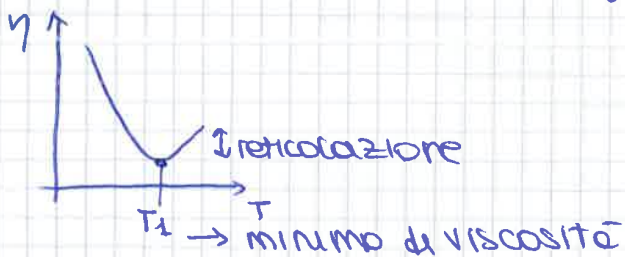 η
↕ reticolazione
T
T1 → minimo di viscosità